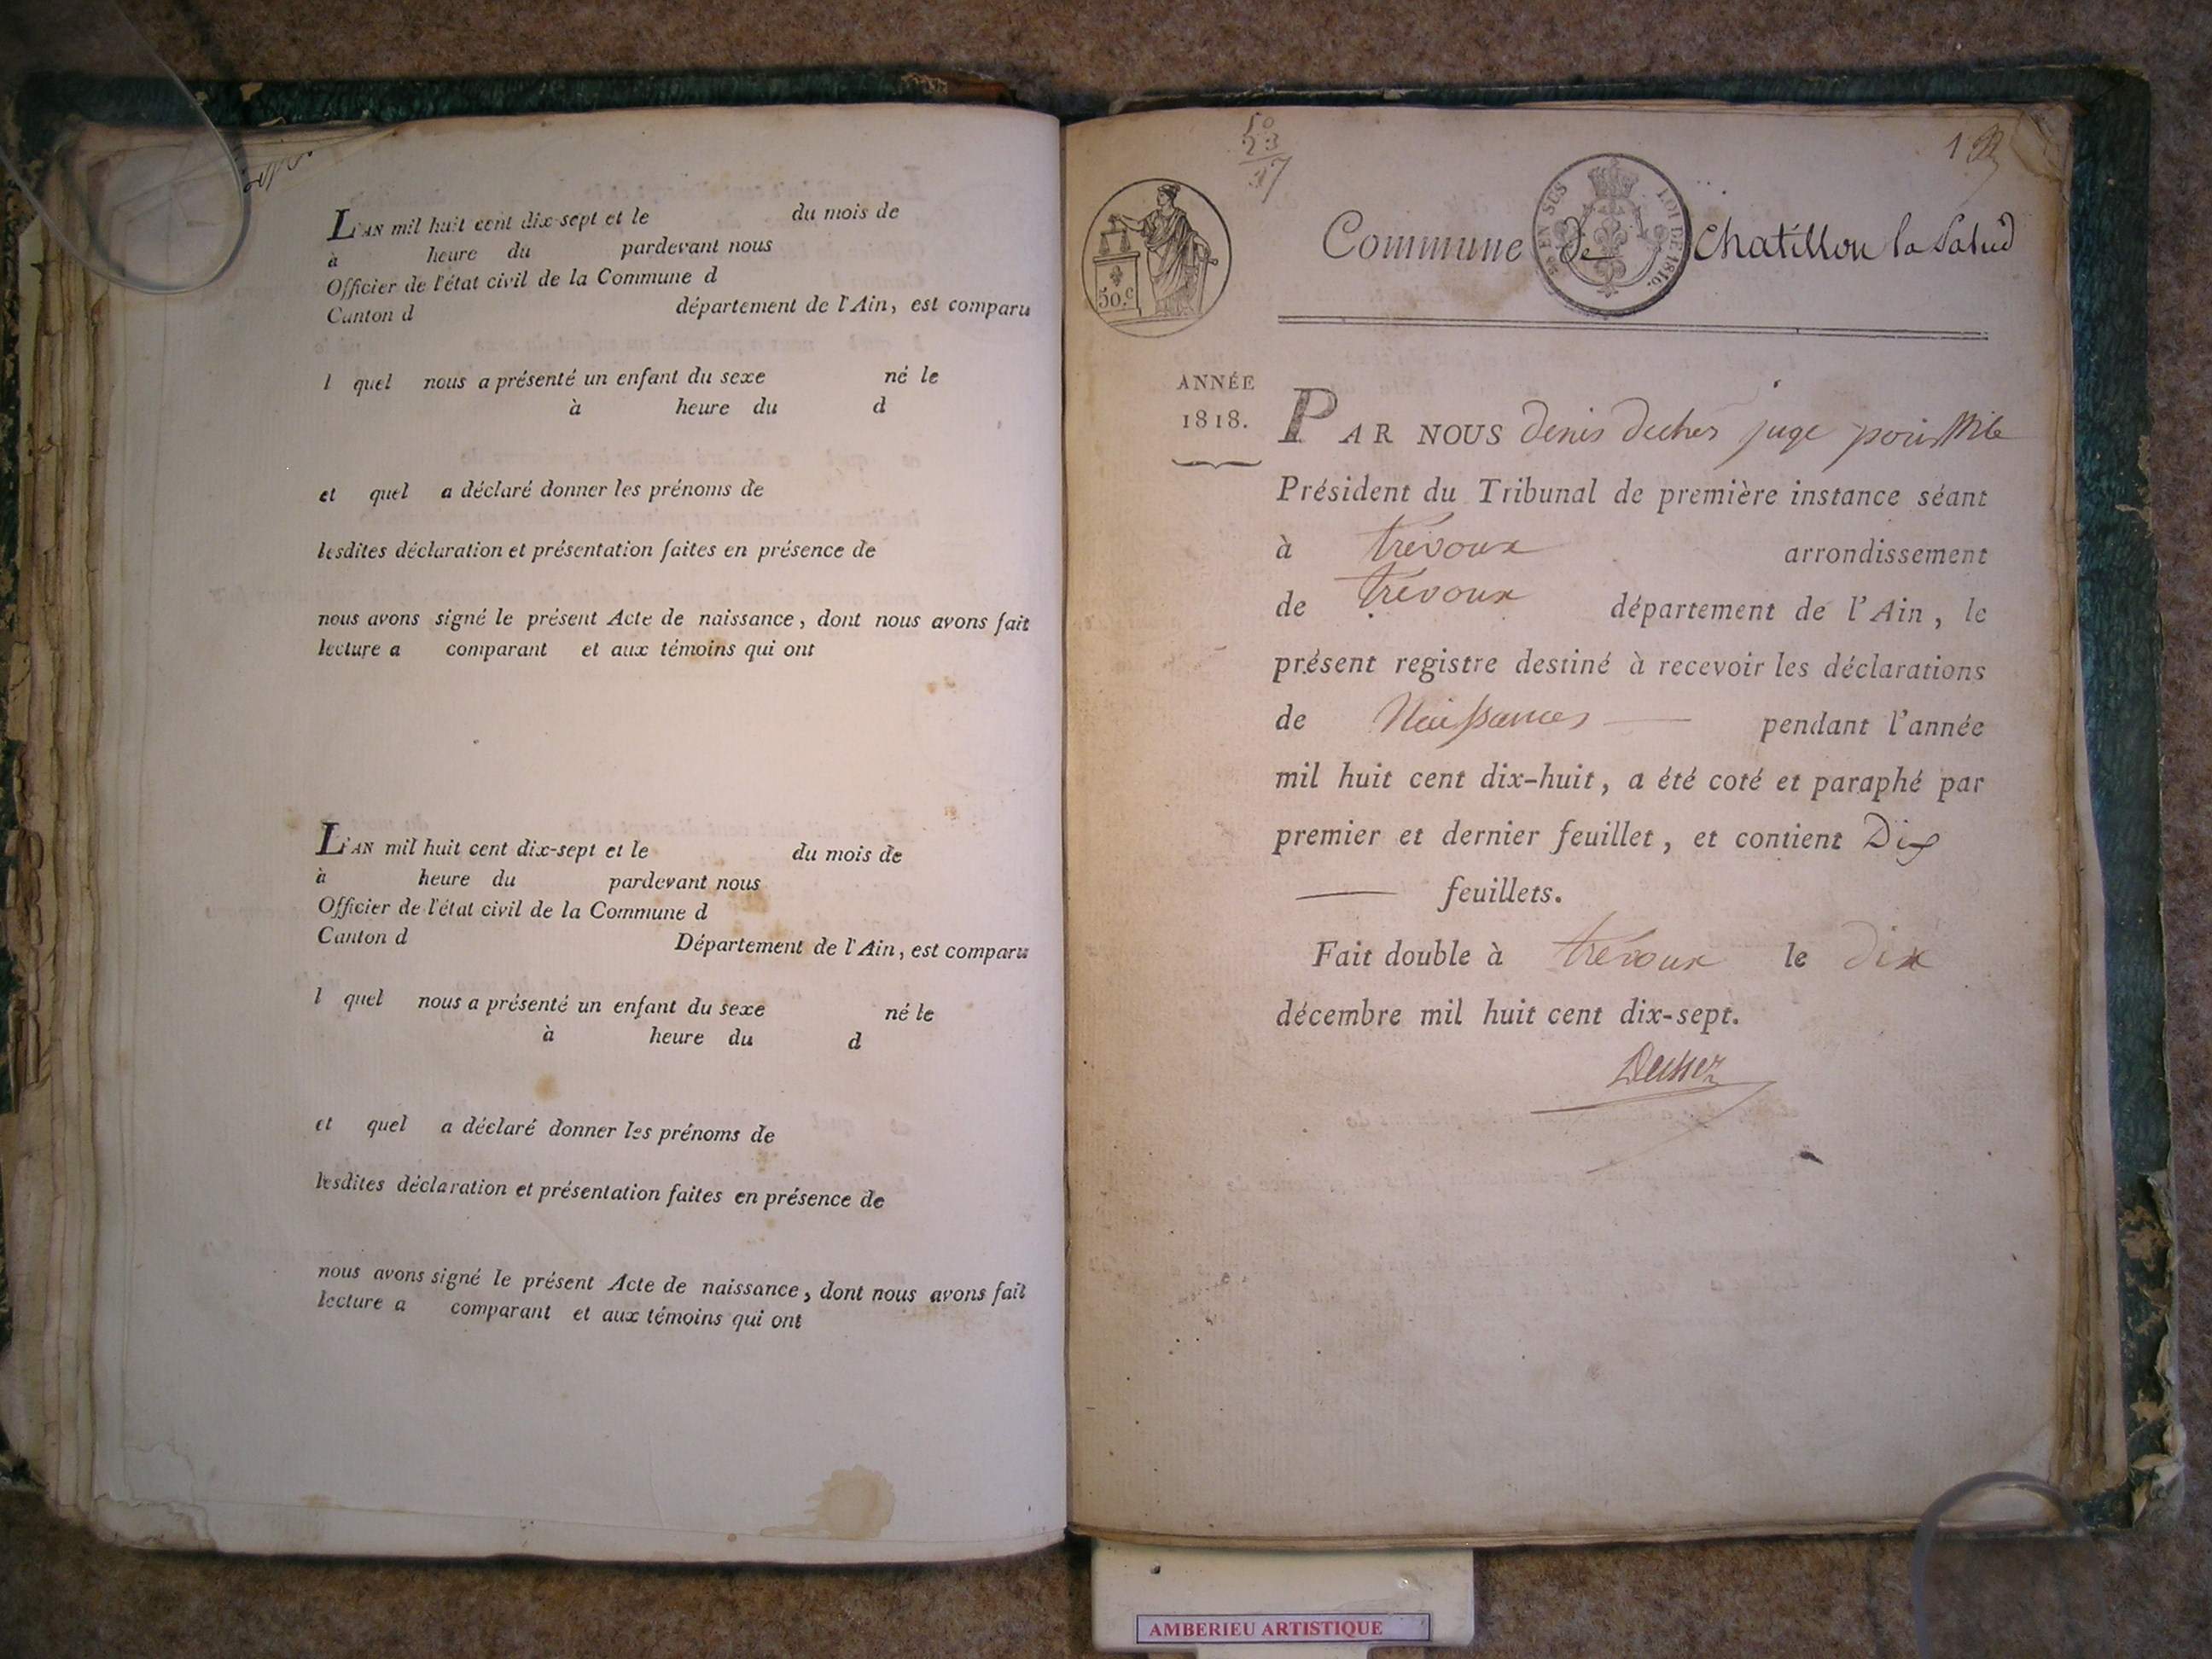 L'AN mil huit cent dix-sept et le du mois de
à heure du pardevant nous
Officier de l'état civil de la Commune d
Canton d département de l'Ain, est comparu
l quel nous a présenté un enfant du sexe né le
à heure du d
et quel a déclaré donner les prénoms de
lesdites déclaration et présentation faites en présence de
nous avons signé le présent Acte de naissance, dont nous avons fait
lecture a comparant et aux témoins qui ont
L'AN mil huit cent dix-sept et le du mois de
à heure du pardevant nous
Officier de l'état civil de la Commune d
Canton d Département de l'Ain, est comparu
l quel nous a présenté un enfant du sexe né le
à heure du d
et quel a déclaré donner les prénoms de
lesdites déclaration et présentation faites en présence de
nous avons signé le présent Acte de naissance, dont nous avons fait
lecture a comparant et aux témoins qui ont
50
23
1
50.c
EN SUS LOI DE 1816.
Commune de Chatillon la Palud
ANNÉE
1818.
PAR NOUS denis juge pour
Président du Tribunal de première instance séant
à trévoux arrondissement
de trévoux département de l'Ain, le
présent registre destiné à recevoir les déclarations
de Naissances — pendant l'année
mil huit cent dix-huit, a été coté et paraphé par
premier et dernier feuillet, et contient Dix
— feuillets.
Fait double à trévoux le dix
décembre mil huit cent dix-sept.
AMBERIEU ARTISTIQUE